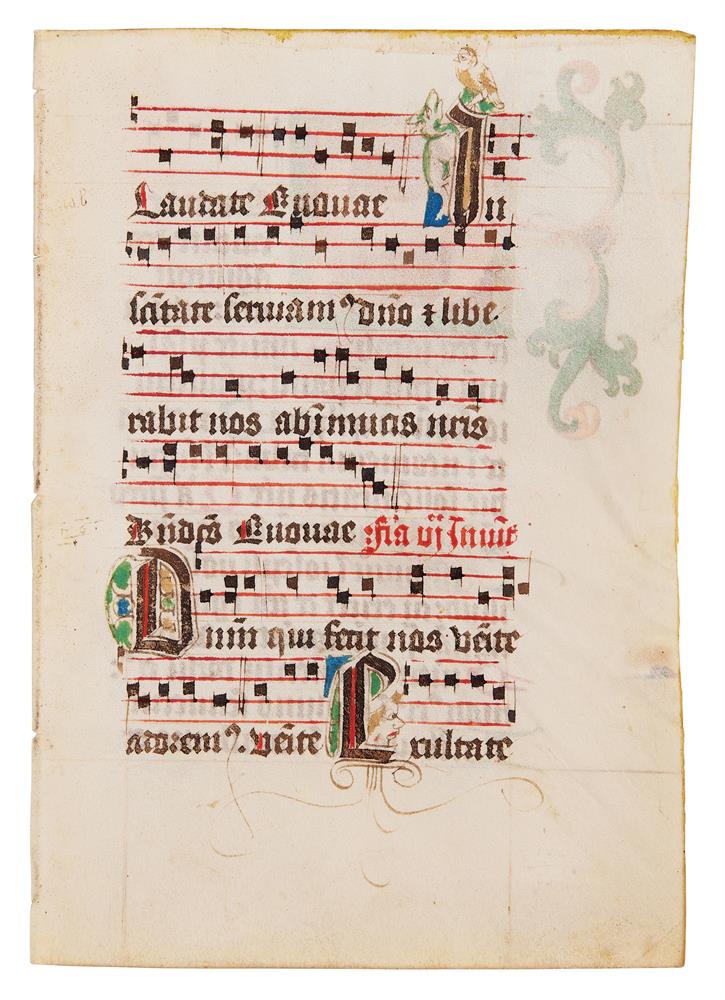 Laudate Euouae In
sc̄itate seruiam⁹ dn̄o ⁊ libe-
rabit nos ab īimicis nr̄is
Bn̄dc̄s Euouae Fīa vj Inuit̄
Dn̄m qui fecit nos ven̄ite
adorem⁹. Ven̄ite Exultate